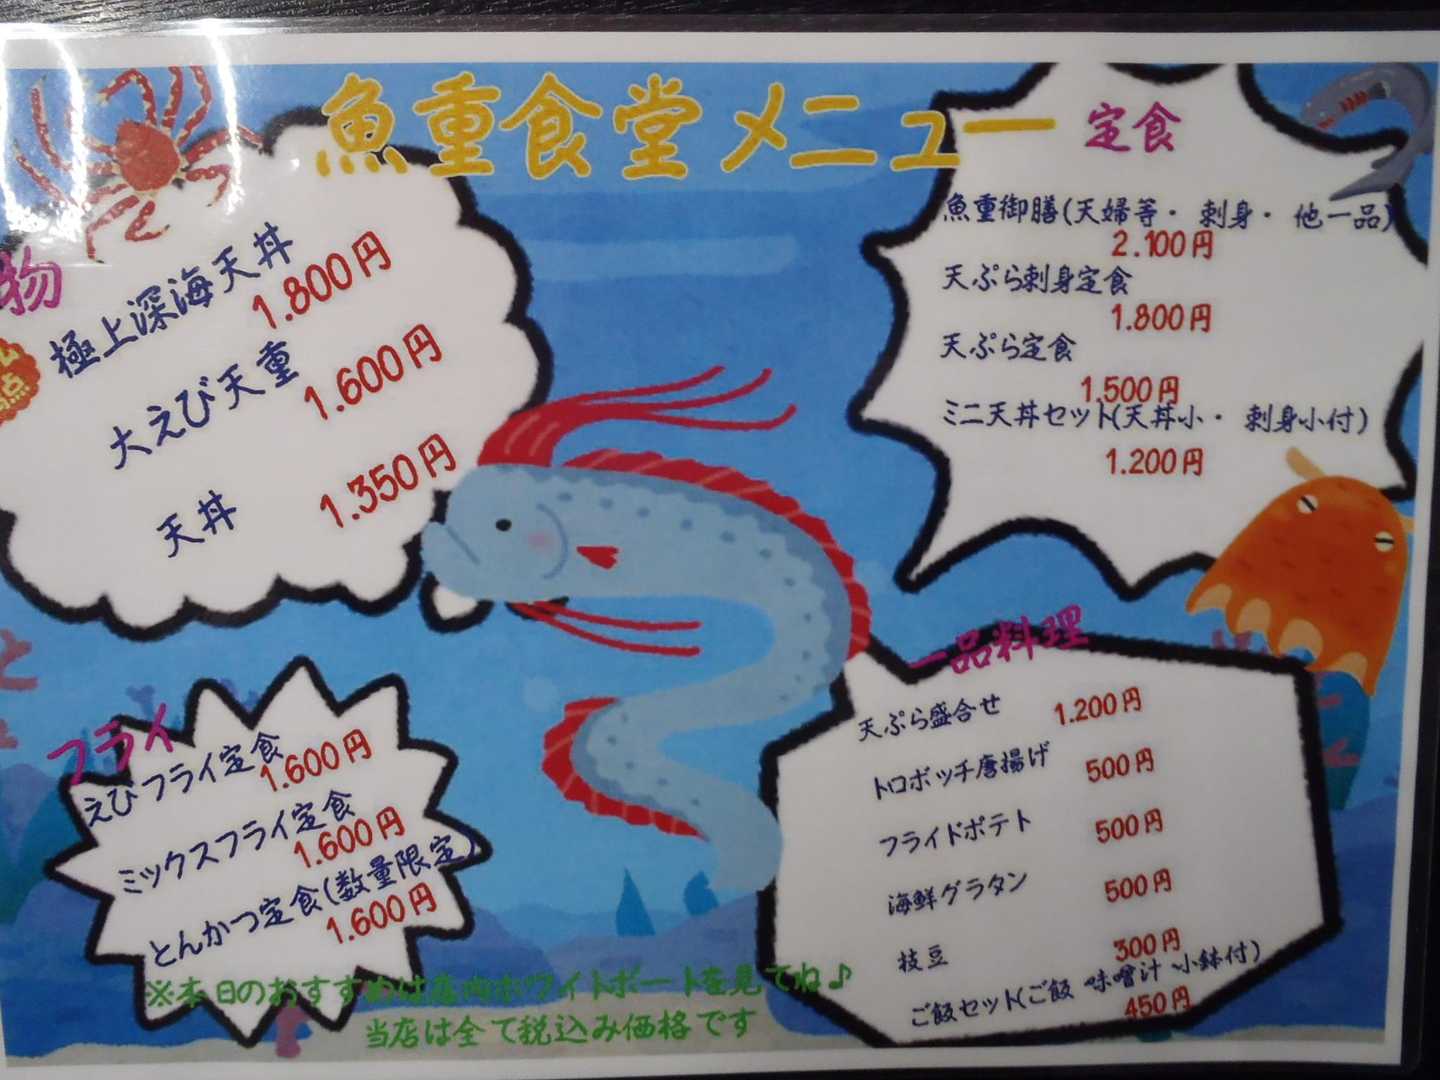 魚重食堂メニュー
物
極上深海天丼
1.800円
大えび天重
1.600円
天丼 1.350円
定食
魚重御膳(天婦等・ 刺身・ 他一品)
2.100円
天ぷら刺身定食
1.800円
天ぷら定食
1.500円
ミニ天丼セット(天丼小・ 刺身小付)
1.200円
フライ
えびフライ定食
1.600円
ミックスフライ定食
1.600円
とんかつ定食(数量限定)
1.600円
一品料理
天ぷら盛合せ 1.200円
トロボッチ唐揚げ 500円
フライドポテト 500円
海鮮グラタン 500円
枝豆 300円
ご飯セット(ご飯 味噌汁 小鉢付)
450円
※本日のおすすめは店内ホワイトボートを見てね♪
当店は全て税込み価格です